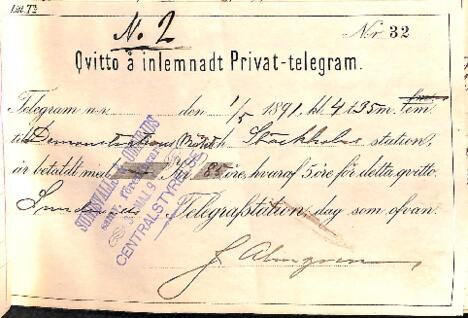 Litt. T2
N. 2
Nr 32
Qvitto å inlemnadt Privat-telegram.
Telegram n:r den 1/5 1891, kl. 4 t 35 m. em.
till Demonstrations mötet Stockholms station,
är betaldt med kr. 85 öre, hvaraf 5 öre för detta qvitto.
Sundsvalls Telegrafstation, dag som ofvan.
SUNDSVALLS
CENTRALSTYRELSE